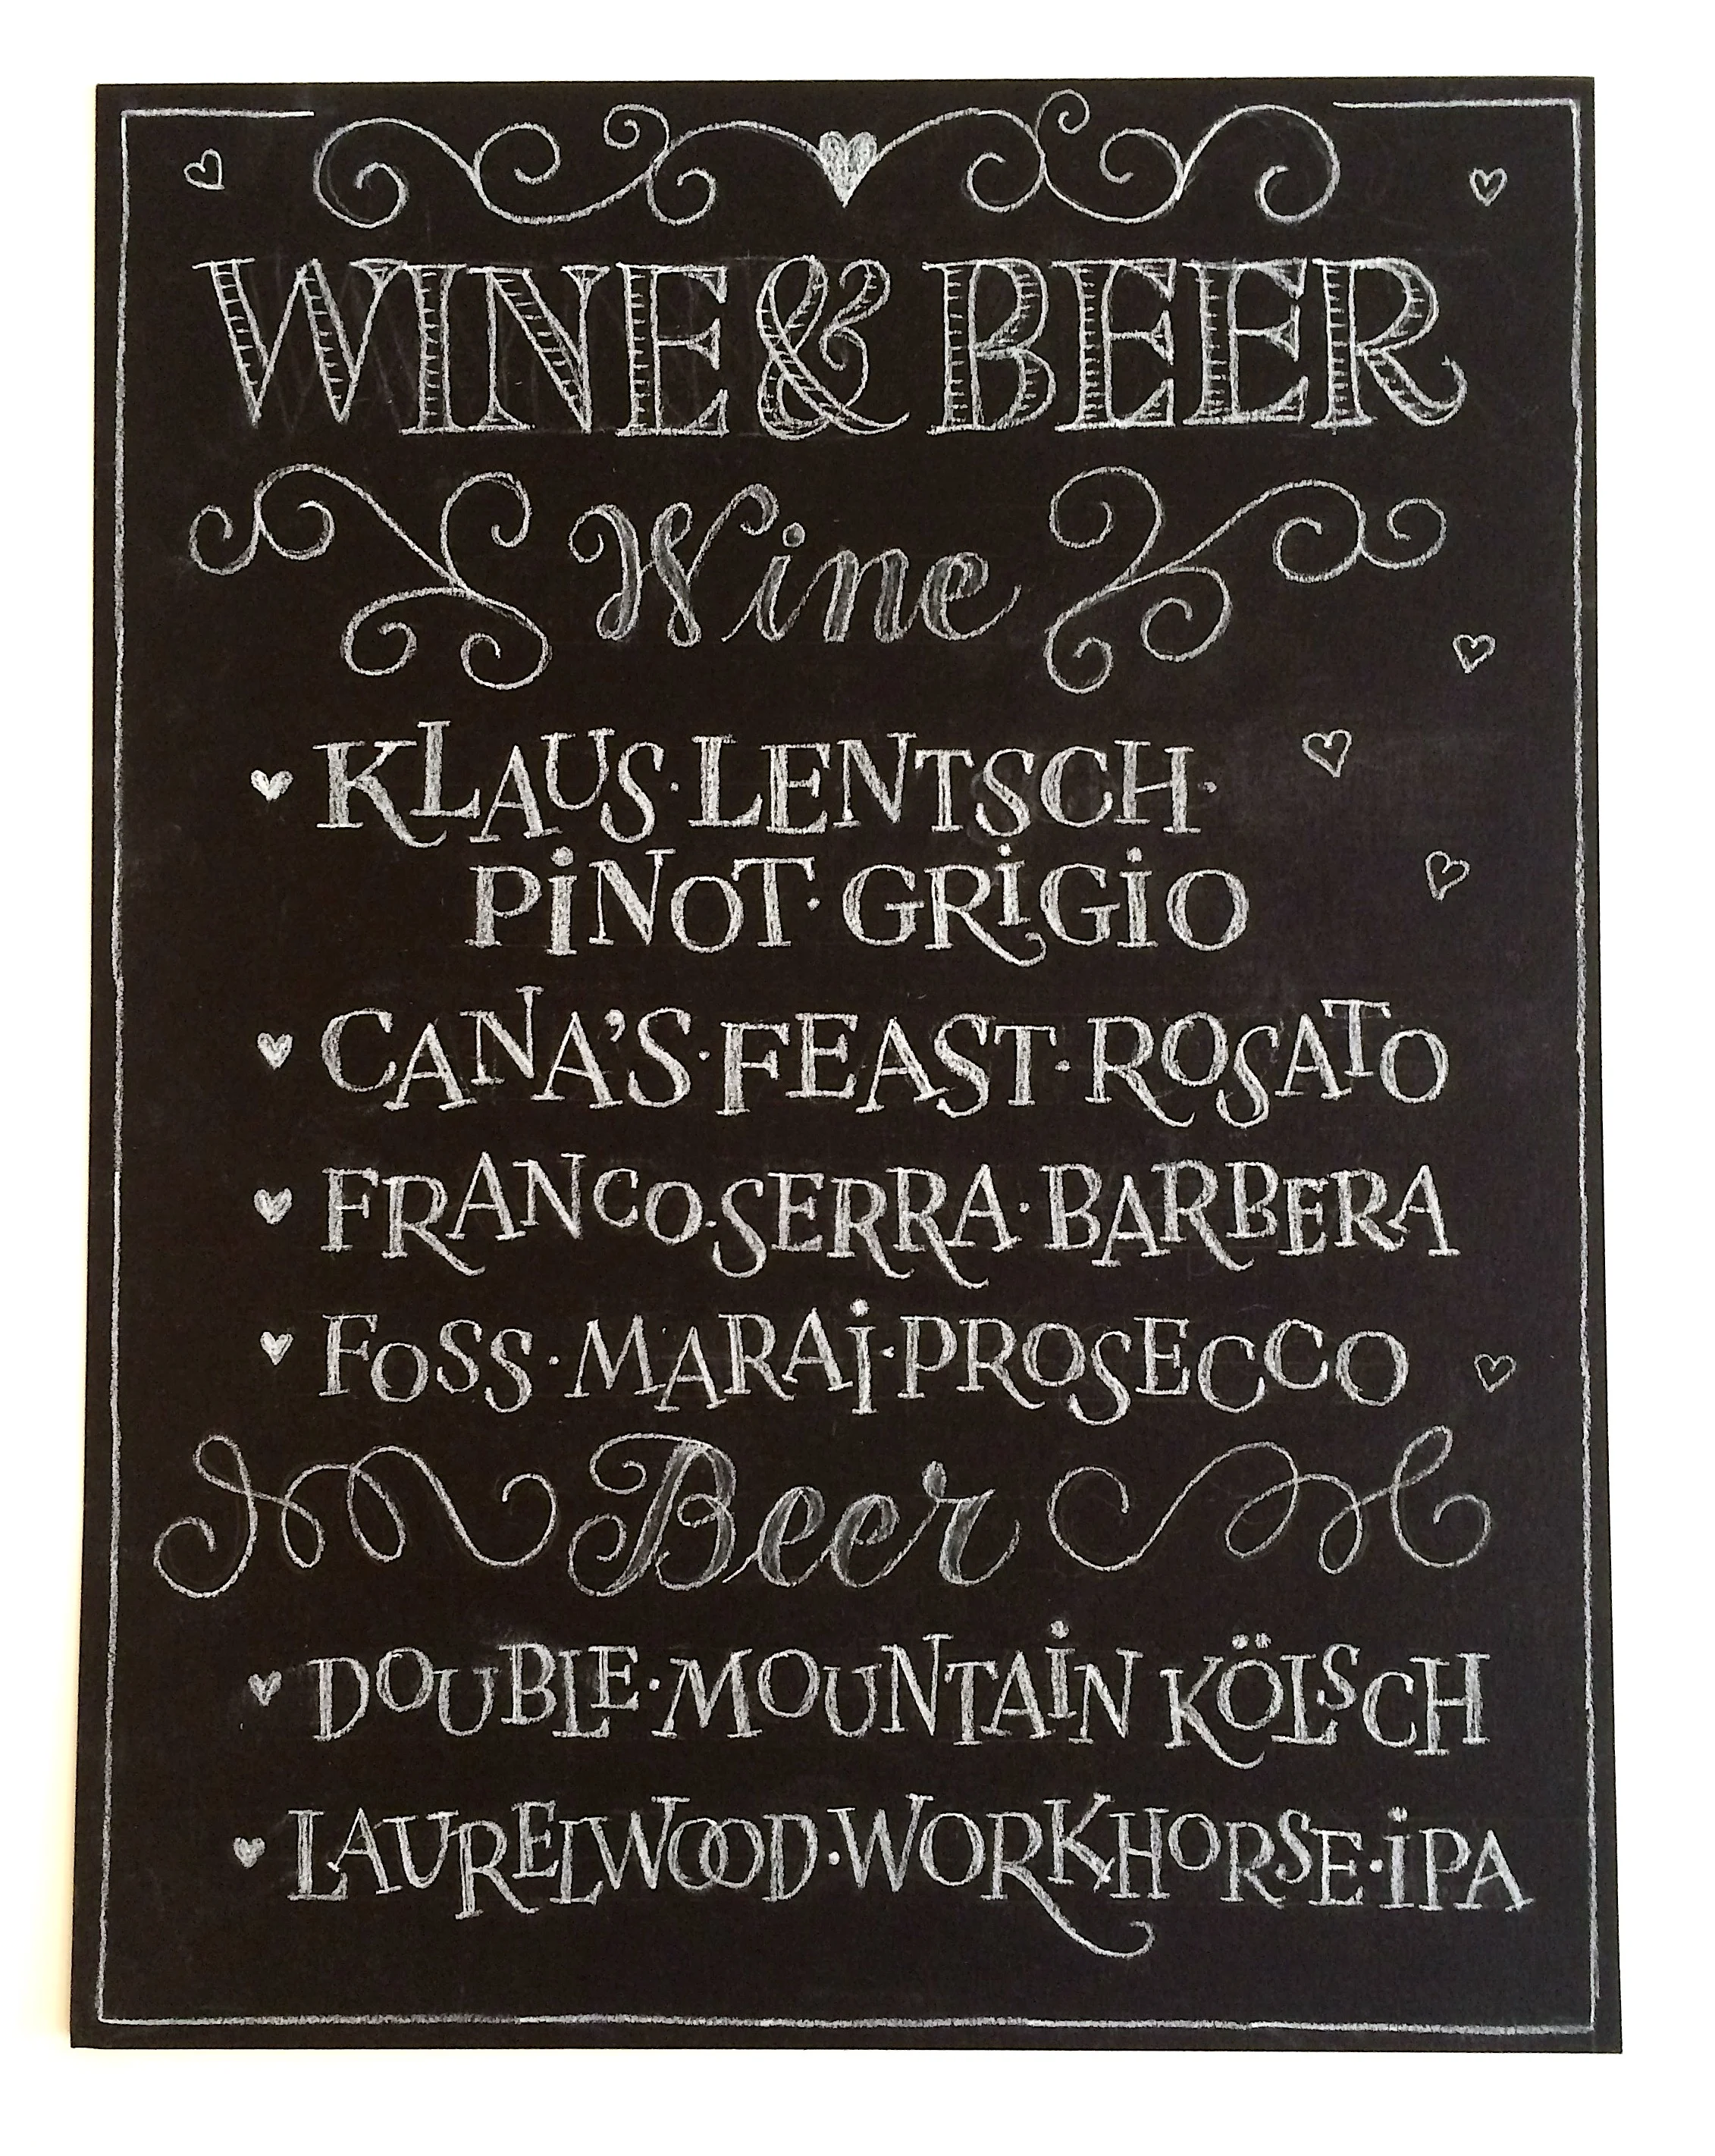 WINE & BEER
Wine
KLAUS·LENTSCH·
PiNOT·GRiGiO
CANA'S·FEAST·ROSATO
FRANCO·SERRA·BARBERA
FOSS·MARAi·PROSECCO
Beer
DOUBLE·MOUNTAiN KÖLSCH
LAURELWOOD·WORKHORSE·iPA